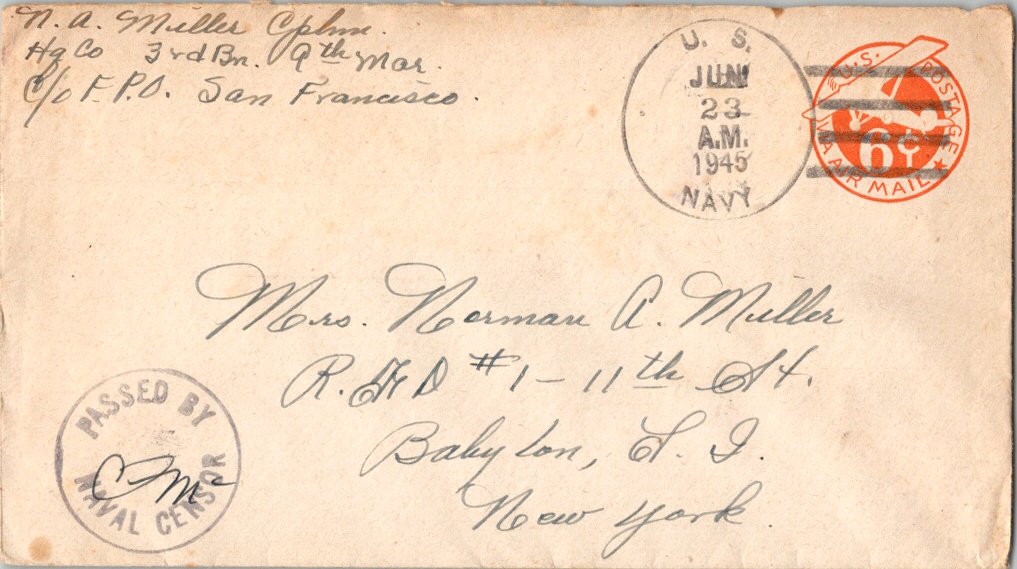 N. A. Miller Cplm.
Hq Co 3rd Bn. 9th Mar.
C/o F.P.O. San Francisco.
U. S.
JUN
23
A.M.
1945
NAVY
U.S. POSTAGE
6¢
VIA AIR MAIL
Mrs. Norman A. Miller
R.F.D #1-11th St.
Babylon, L. I.
New York.
PASSED BY
NAVAL CENSOR